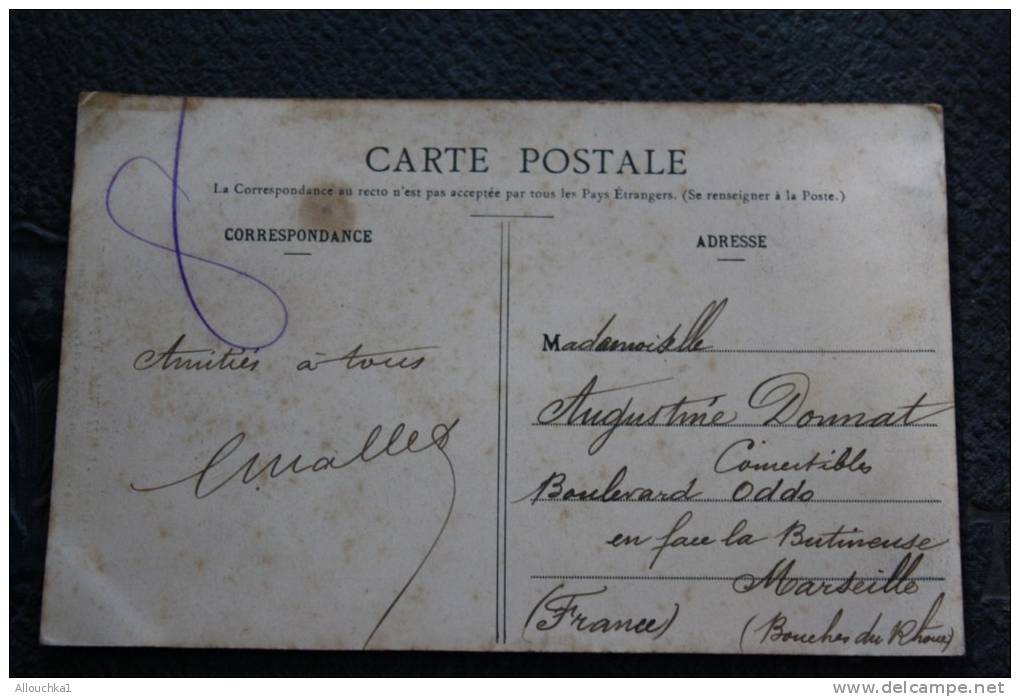 CARTE POSTALE
La Correspondance au recto n'est pas acceptée par tous les Pays Étrangers. (Se renseigner à la Poste.)
CORRESPONDANCE
Amitiés à tous
ADRESSE
Mademoiselle
Augustine Donnat
Comestibles
Boulevard Oddo
en face la Butineuse
Marseille
(France)
(Bouches du Rhône)
Allouchka1
http://www.delcampe.net